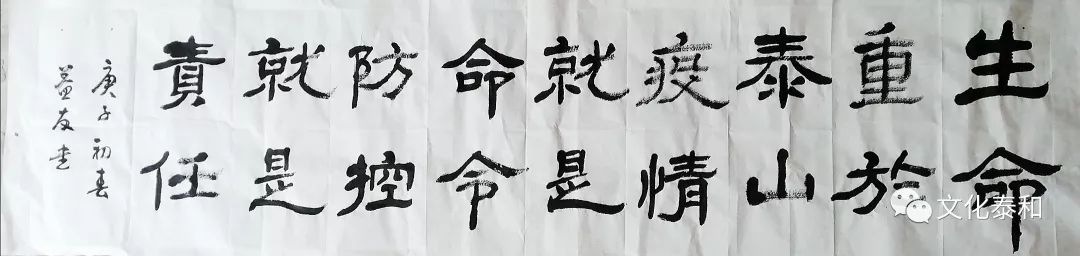 生命
重於
泰山
疫情
就是
命令
防控
就是
責任
庚子初春
益友书
文化泰和